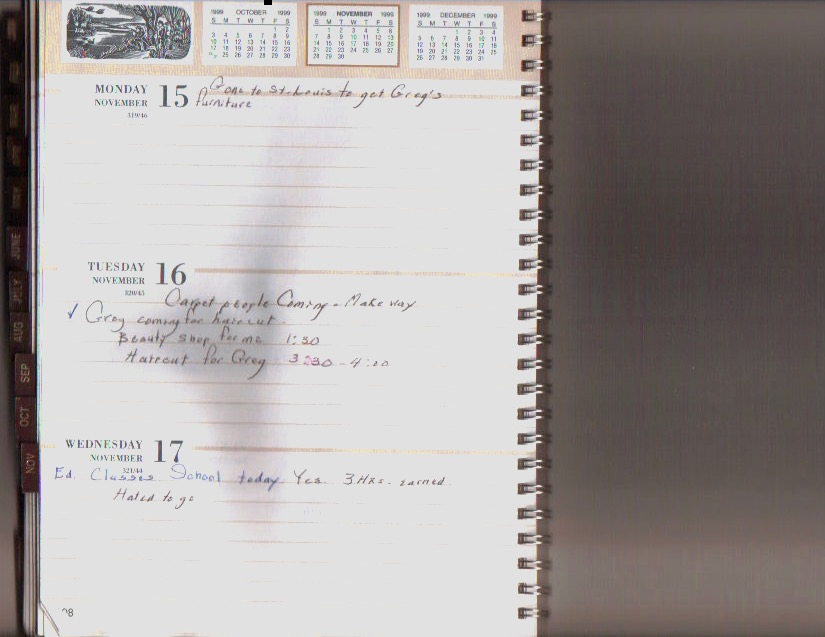 1999 OCTOBER 1999
S M T W T F S
1 2
3 4 5 6 7 8 9
10 11 12 13 14 15 16
17 18 19 20 21 22 23
25 26 27 28 29 30
1999 NOVEMBER 1999
S M T W T F S
1 2 3 4 5 6
7 8 9 10 11 12 13
14 15 16 17 18 19 20
21 22 23 24 25 26 27
28 29 30
1999 DECEMBER 1999
S M T W T F S
1 2 3 4
5 6 7 8 9 10 11
12 13 14 15 16 17 18
19 20 21 22 23 24 25
26 27 28 29 30 31
MONDAY
NOVEMBER 15
319/46
Gone to St. Louis to get Greg's
furniture
TUESDAY
NOVEMBER 16
320/45
Carpet people Coming - Make way
✓ Greg coming for haircut.
Beauty shop for me 1:30
Haircut for Greg 3:30 - 4:00
WEDNESDAY
NOVEMBER 17
321/44
Ed. Classes School today. Yes. 3 Hrs. earned
Hated to go
JUNE
JULY
AUG
SEP
OCT
NOV